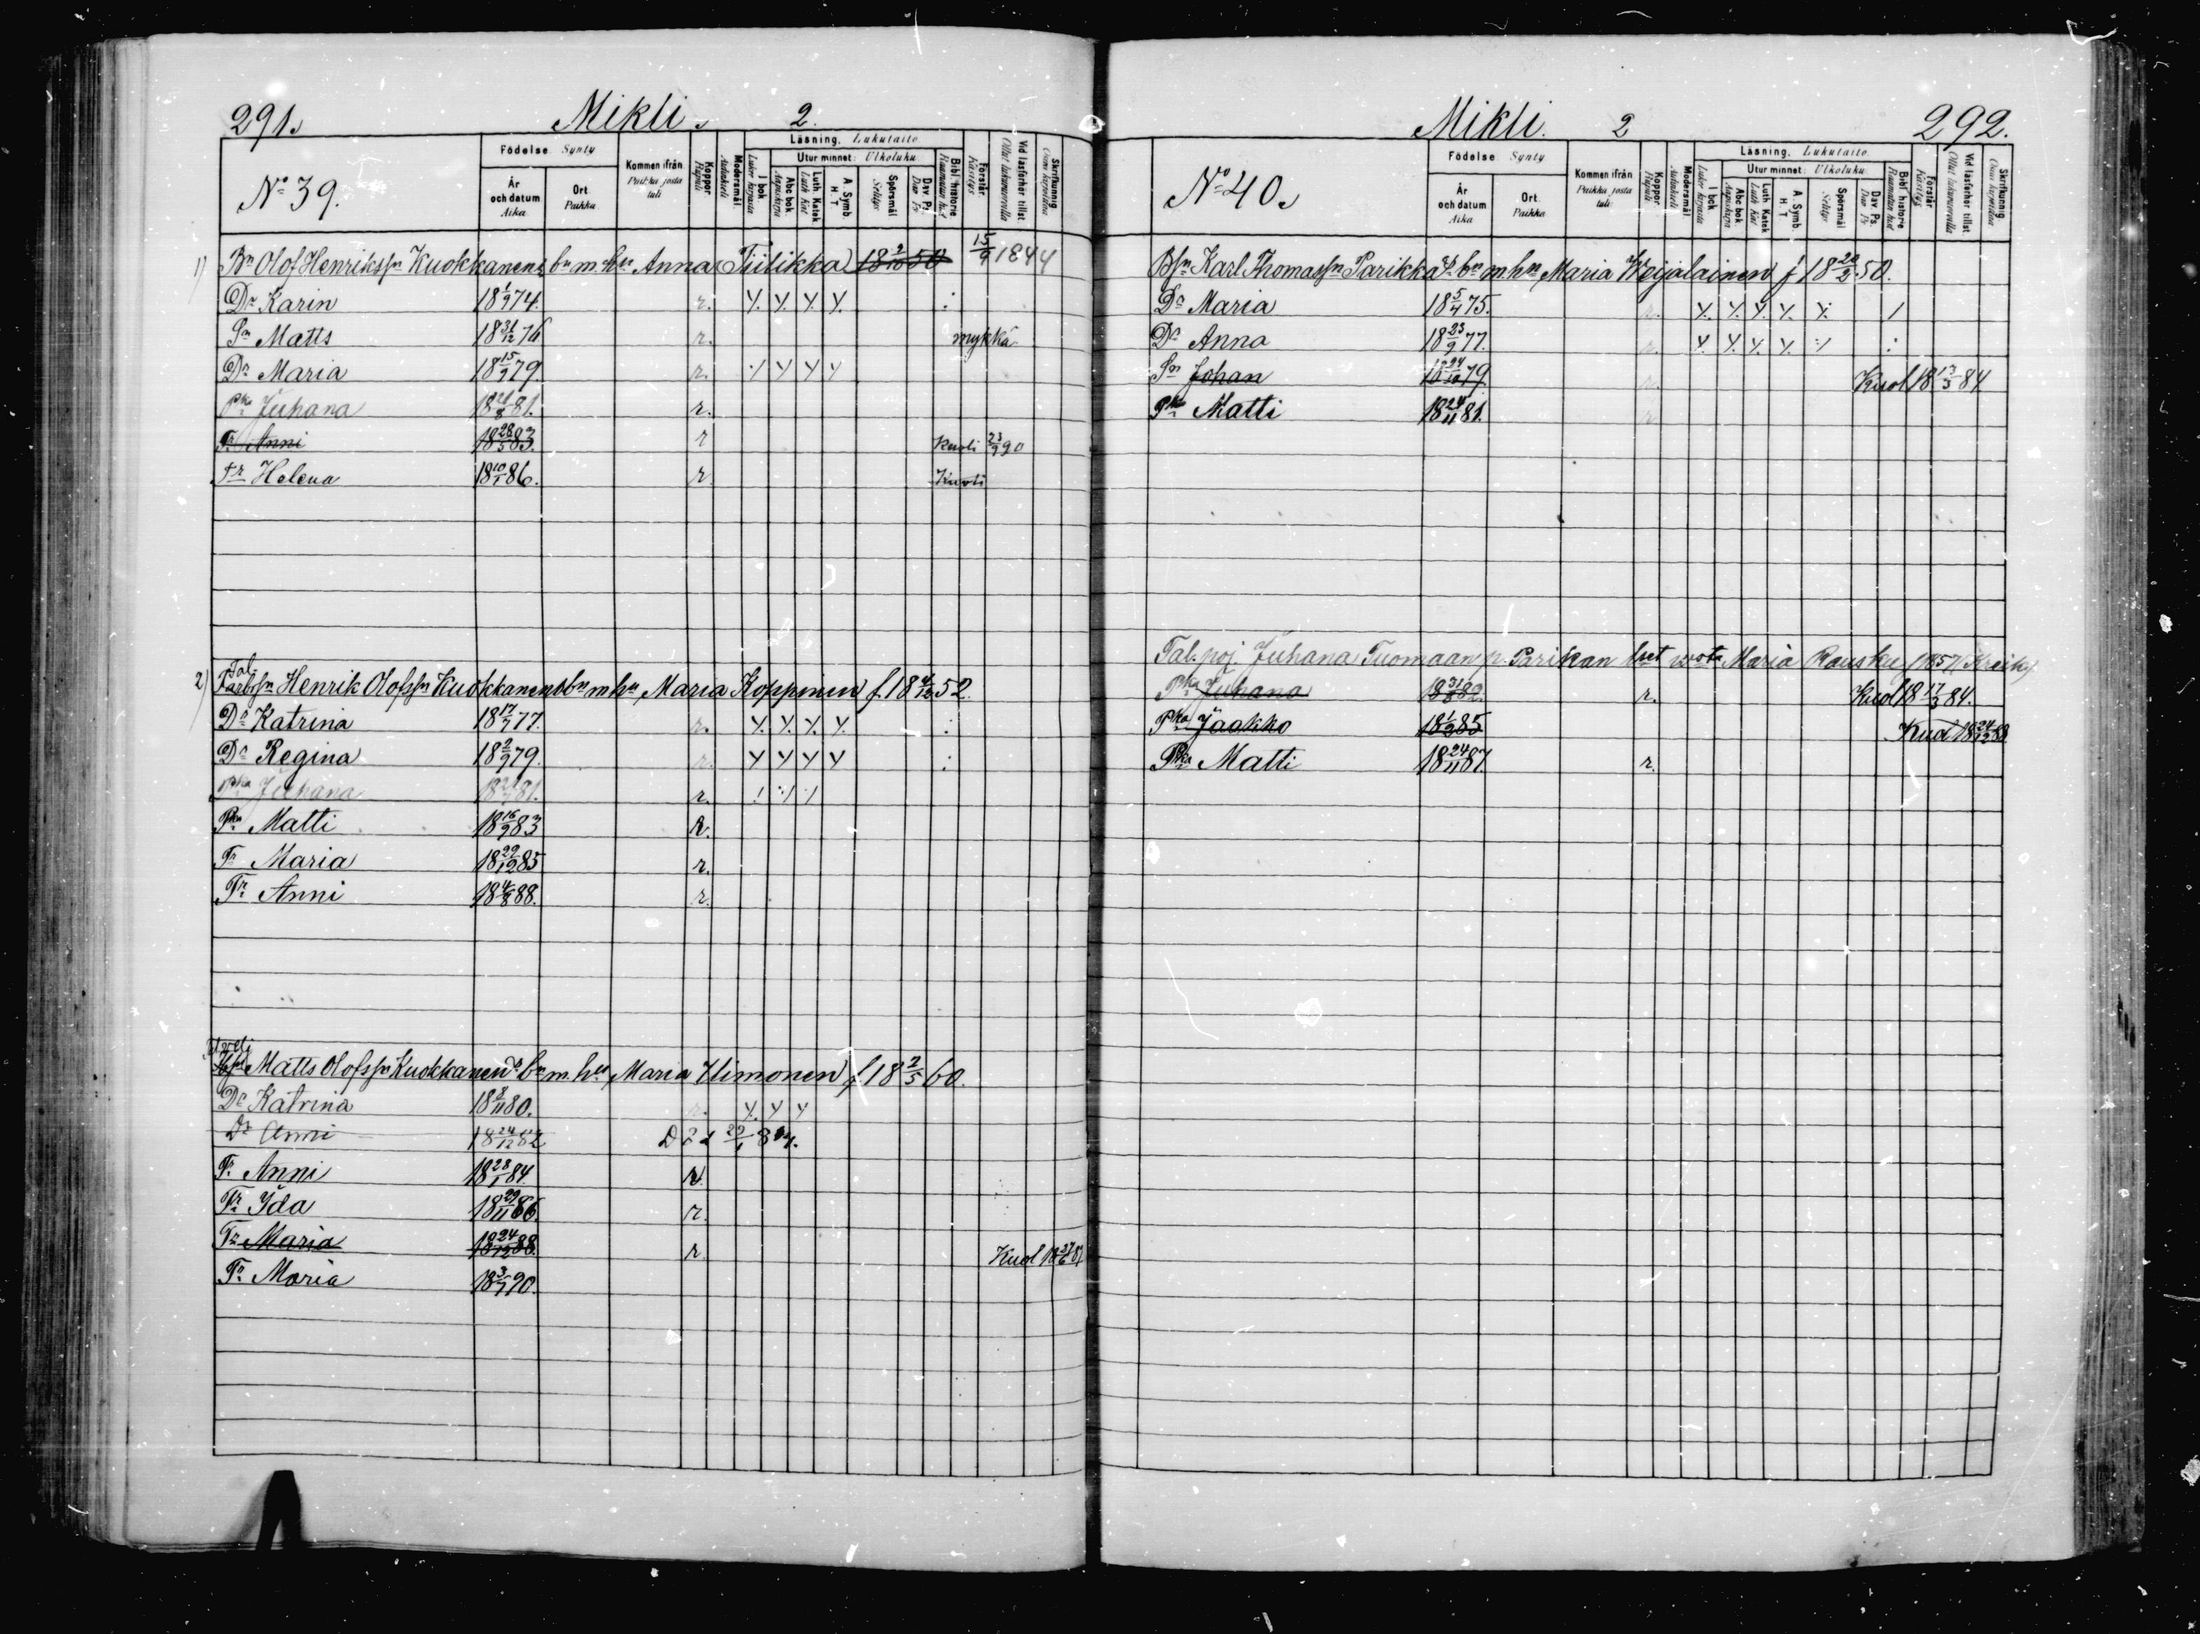 291. Mikli. 2.
Nº 39.
Födelse Synty
År och datum Aika
Ort Paikka
Kommen ifrån Paikka josta tuli
Koppor Rupuli
Modersmål. Äidinkieli
Läsning. Lukutaito
I bok Lukee kirjasta
Utur minnet: Ulkoluku
Abc bok Aapiskirja
Luth Katek Luth Kat
A. Symb. H. T
Spörsmål Selitys
Dav Ps Dav Ps
Bibl historie Raamatun hist
Förstår. Käsitys
Vid läsförhör tillst. Ollut lukuneuvoilla
Skrifkunnig Osaa kirjoittaa
1) Bn Olof Henrikssn Kuokkanens bn m hu Anna Tiilikka 18 2/10 50 15/9 1844
Dr Karin 18 1/9 74. r. : 
Sn Matts 18 31/12 76 r. mykkä
Dr Maria 18 15/9 79. r.
Pka Juhana 18 21/8 81. r.
Tr Anni 18 28/5 83. r Kuoli 23/9 90
Tr Helena 18 10/1 86. r. Kuoli
2) Tal. Henrik Olofssn Kuokkanens bn m hu Maria Koppinen f. 18 4/12 52.
Dr Katrina 18 17/7 77. r. :
Dr Regina 18 2/9 79. r. :
Pka Juhana 81. r.
Pka Matti 18 16/9 83 r.
Tr Maria 18 29/12 85 r.
Tr Anni 18 4/8 88. r.
Matts Olofssn Kuokkanens bn m. hu Maria Ilimonen f 18 2/5 60.
Dr Katrina 18 8/11 80. r.
Dr Anni 18 24/12 82 Död 29/1 84.
Tr Anni 18 28/1 84. r.
Tr Ida 18 29/11 86. r.
Tr Maria 18 24/12 88. r. Kuol
Tr Maria 18 3/7 90.
Mikli. 2 292.
Nº 40.
Födelse Synty
År och datum Aika
Ort. Paikka
Kommen ifrån Paikka josta tuli
Koppor Rupuli
Modersmål Äidinkieli
Läsning. Lukutaito.
I bok Lukee kirjasta
Utur minnet: Ulkoluku
Abc bok Aapiskirja
Luth Katek Luth Kat
A. Symb H. T
Spörsmål Selitys
Dav. Ps. Dav Ps
Bibl historie Raamatun hist
Förstår Käsitys
Vid läsförhör tillst. Ollut lukuneuvoilla
Skrifkunnig Osaa kirjoittaa
Bsn Karl Thomassn Parikka's bn m hu Maria Weijalainen f 18 20/2 50.
Dr Maria 18 5/4 75. r.
Dr Anna 18 23/9 77. r. :
Sn Johan 18 24/12 79 r. Kuol 18 13/3 84
Pka Matti 18 24/11 81. r.
Tal. poj. Juhana Tuomaan p. Parikan lset Maria Rausku
Pka Juhana 18 31/8 82. r. Kuol 18 17/3 84.
Pka Jaakko 18 1/2 85 Kuol 18 24/12 88
Pka Matti 18 24/11 87. r.